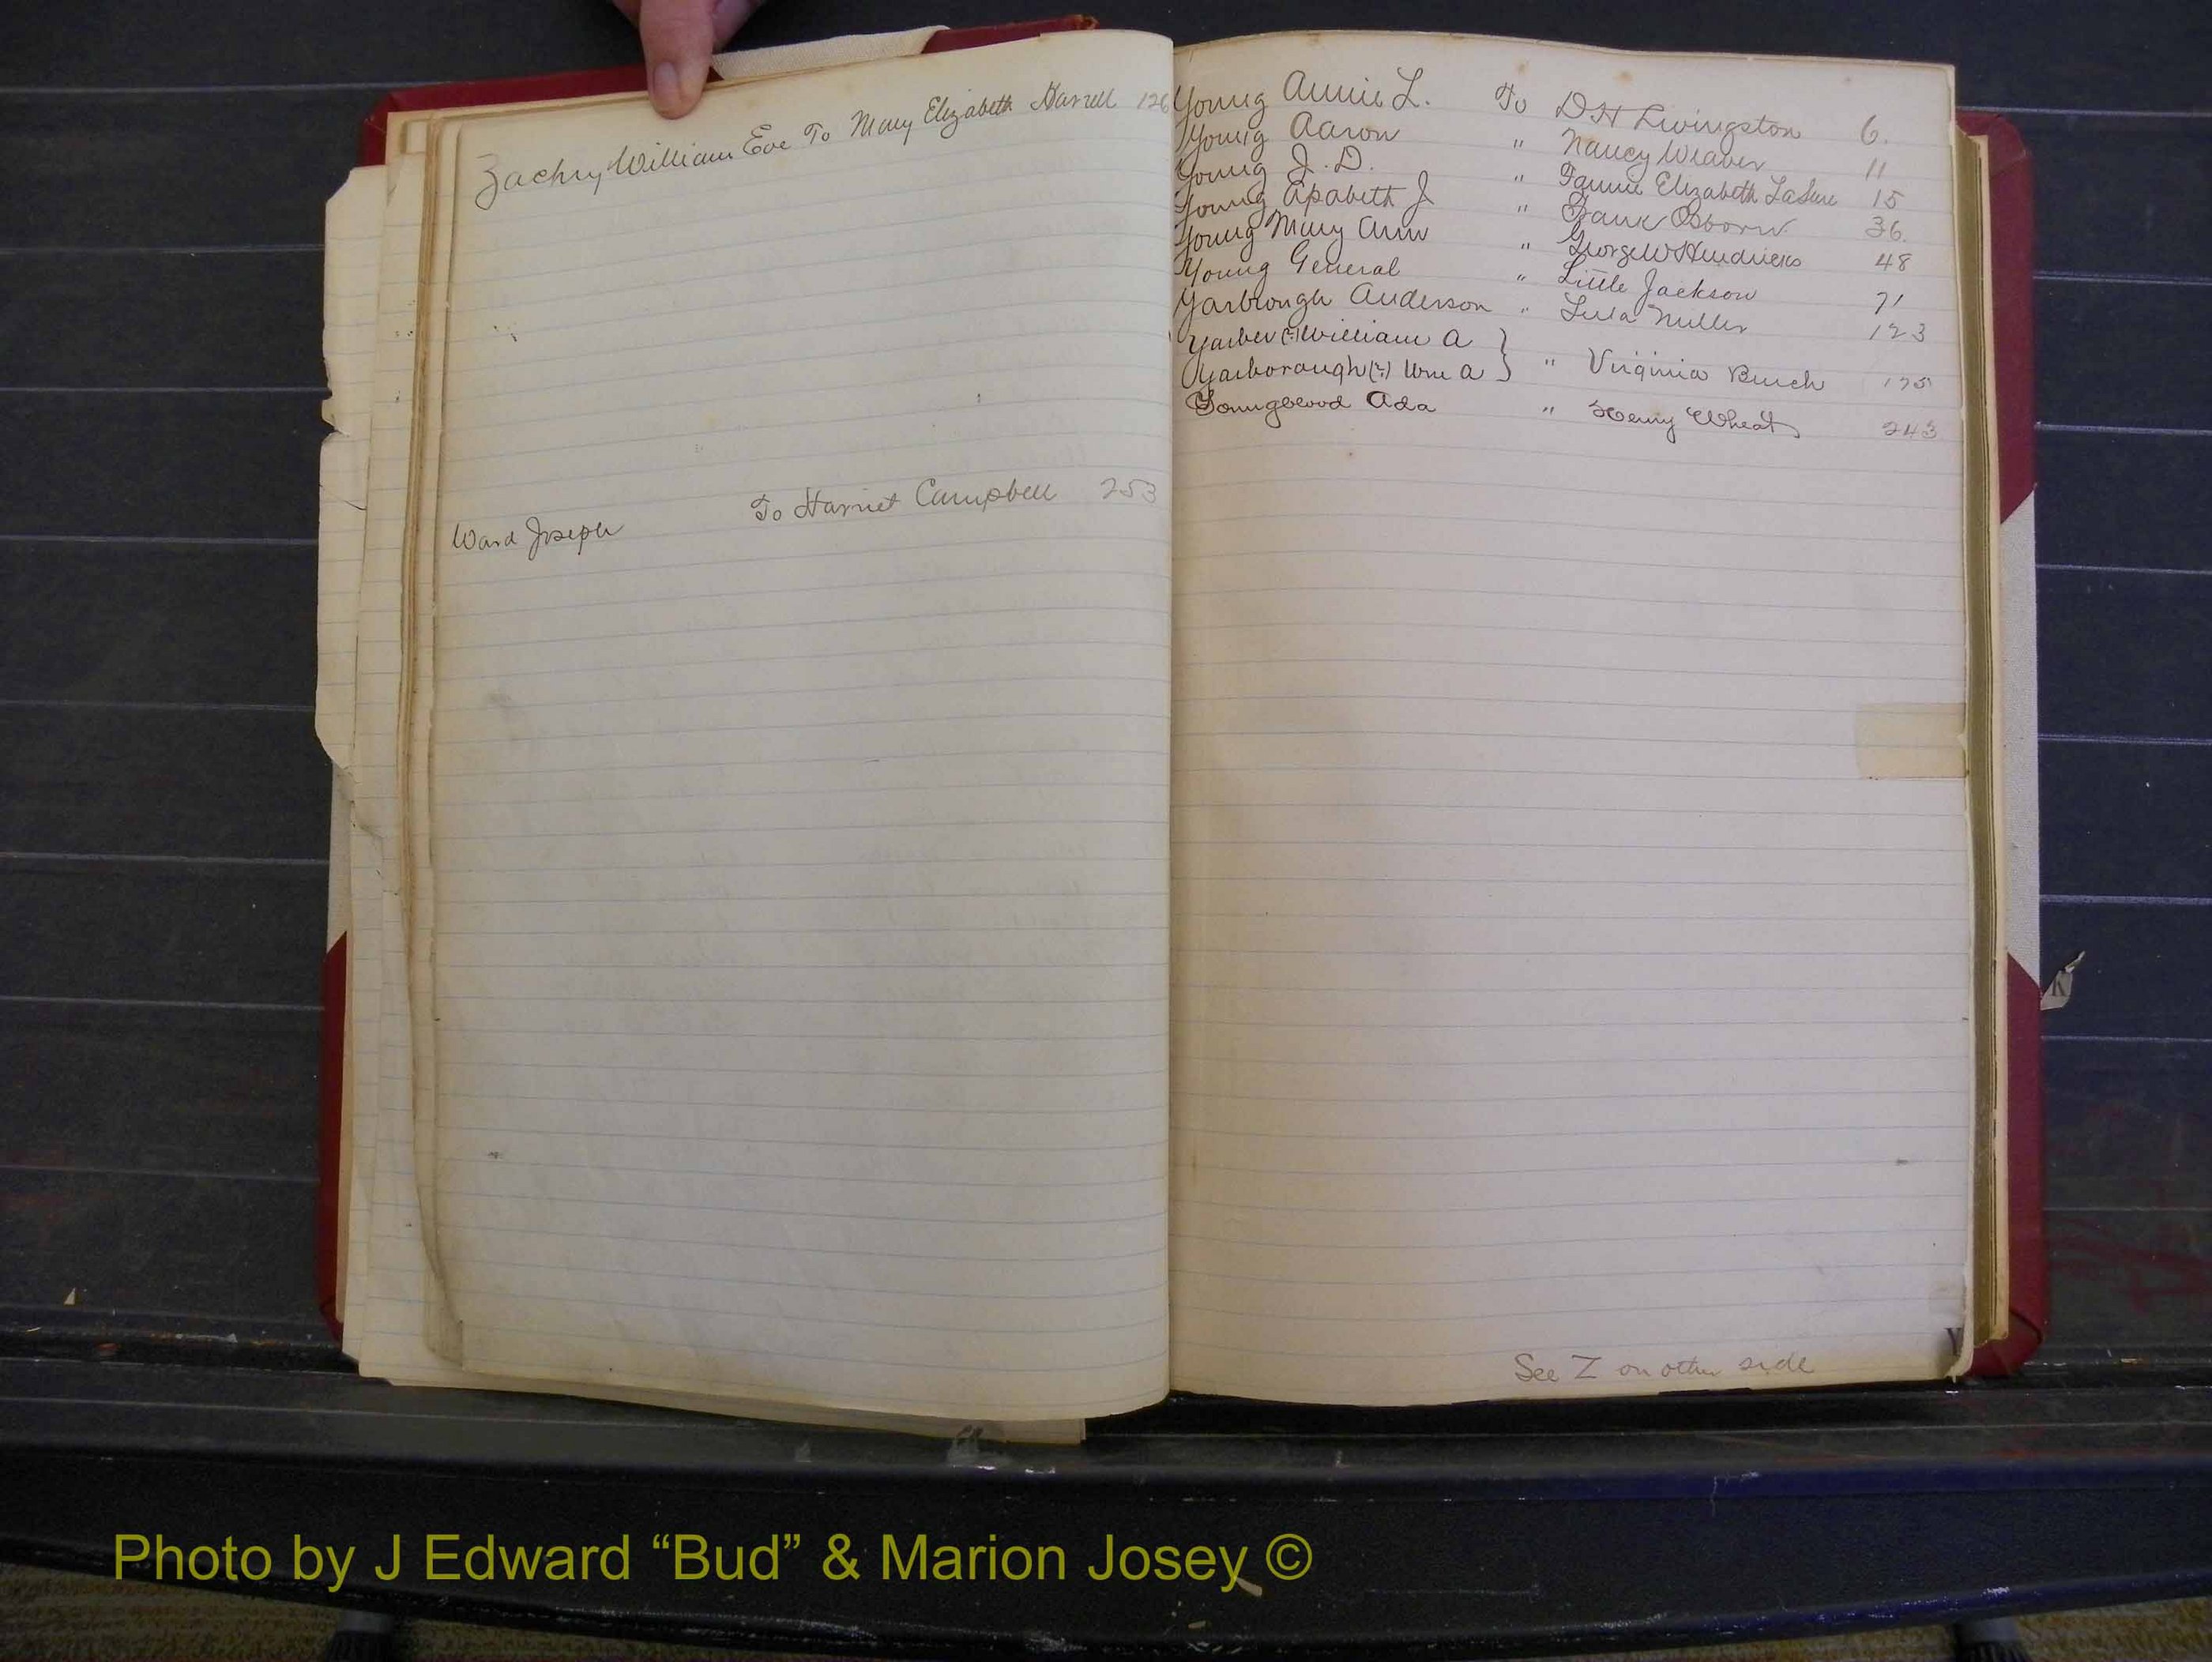 Zachry William Eve To Mary Elizabeth Harrell 126
Ward Joseph To Harriet Campbell 253
Young Annie L. To D H Livingston 6.
Young Aaron " Nancy Weaver 11
Young J. D. " Fannie Elizabeth 15
Young J " Frank Osborn 36.
Young Mary Ann " George W Hendricks 48
Young General " Little Jackson 71
Yarbrough Anderson " Lula Miller 123
Yarber (?) William A
Yarborough (?) Wm A } " Virginia Burch 175
Youngblood Ada " Henry Wheat 243
See Z on other side
Y
K
Photo by J Edward “Bud” & Marion Josey ©